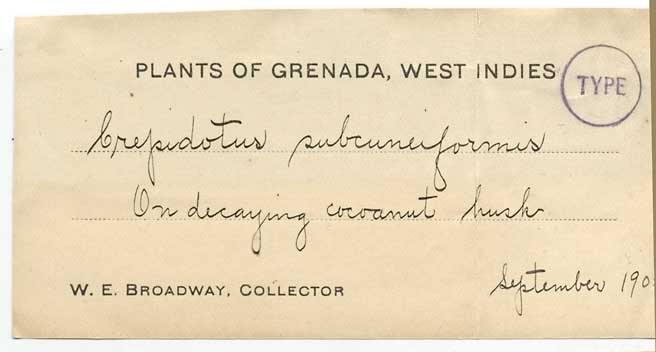 PLANTS OF GRENADA, WEST INDIES
TYPE
Crepidotus subcuneiformis
On decaying cocoanut husk
W. E. BROADWAY, COLLECTOR
September 190